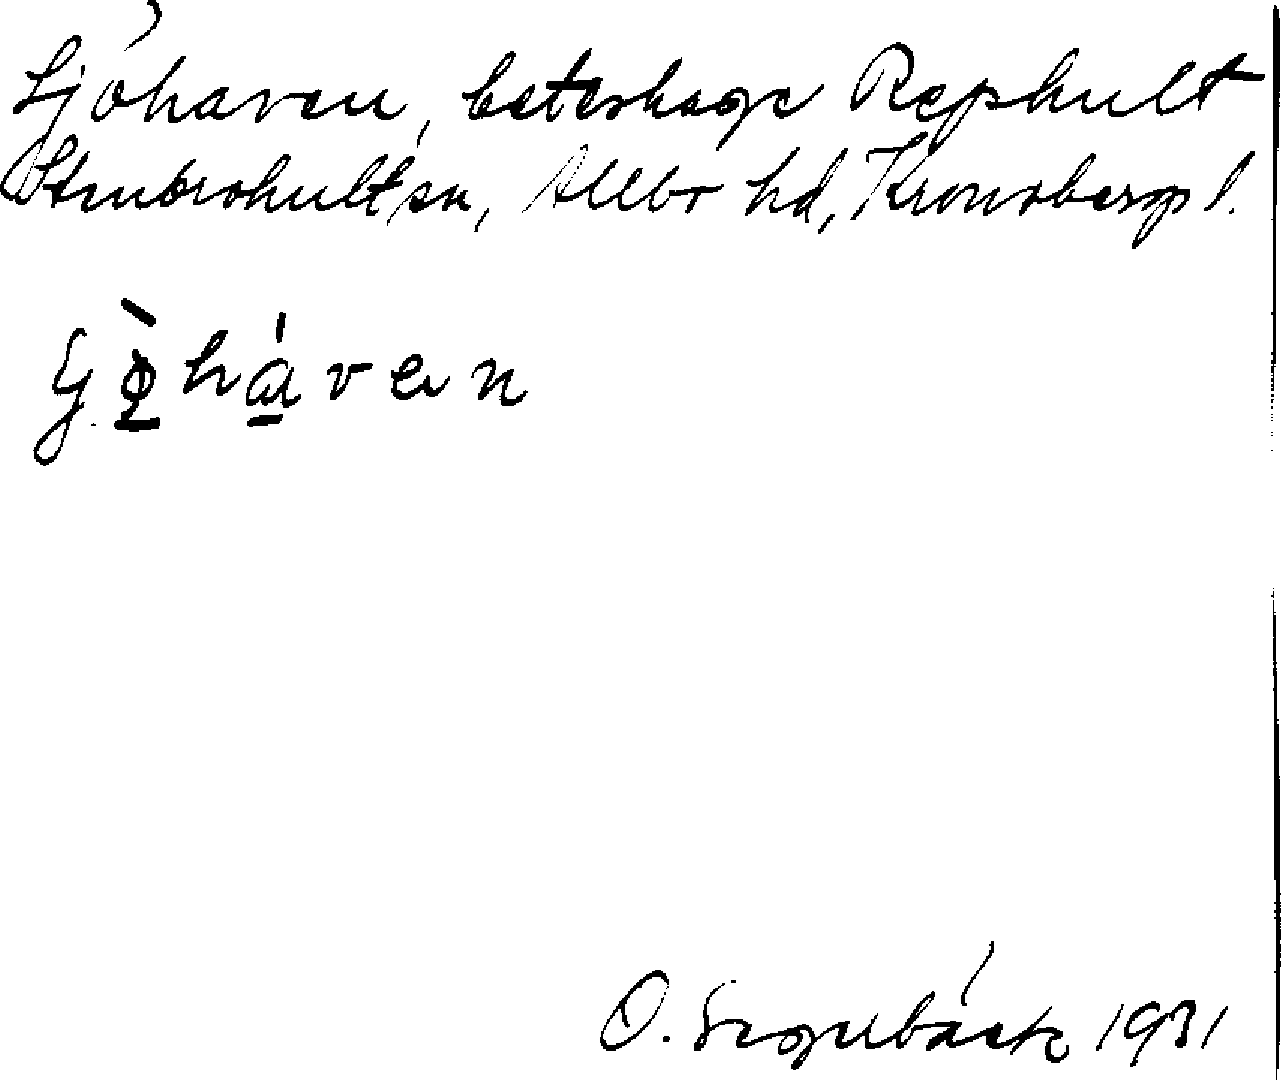 Sjöhaven, beteshage Rephult
Stenbrohult sn, Allbo hd, Kronobergs l.
hàven
O. 1931